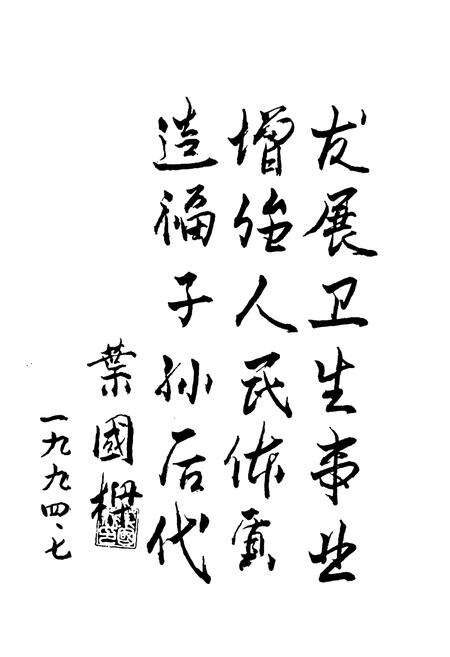 发展卫生事业
增强人民体质
造福子孙后代
葉國樑
一九九四·七